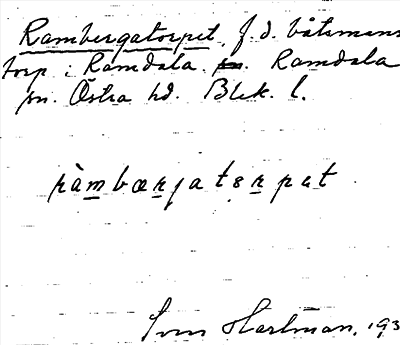 Rambergatorpet, f. d. båtsmans
torp i Ramdala. Ramdala
sn. Östra hd. Blek. l.
ràmbærjatorpat
Sven Hartman, 193